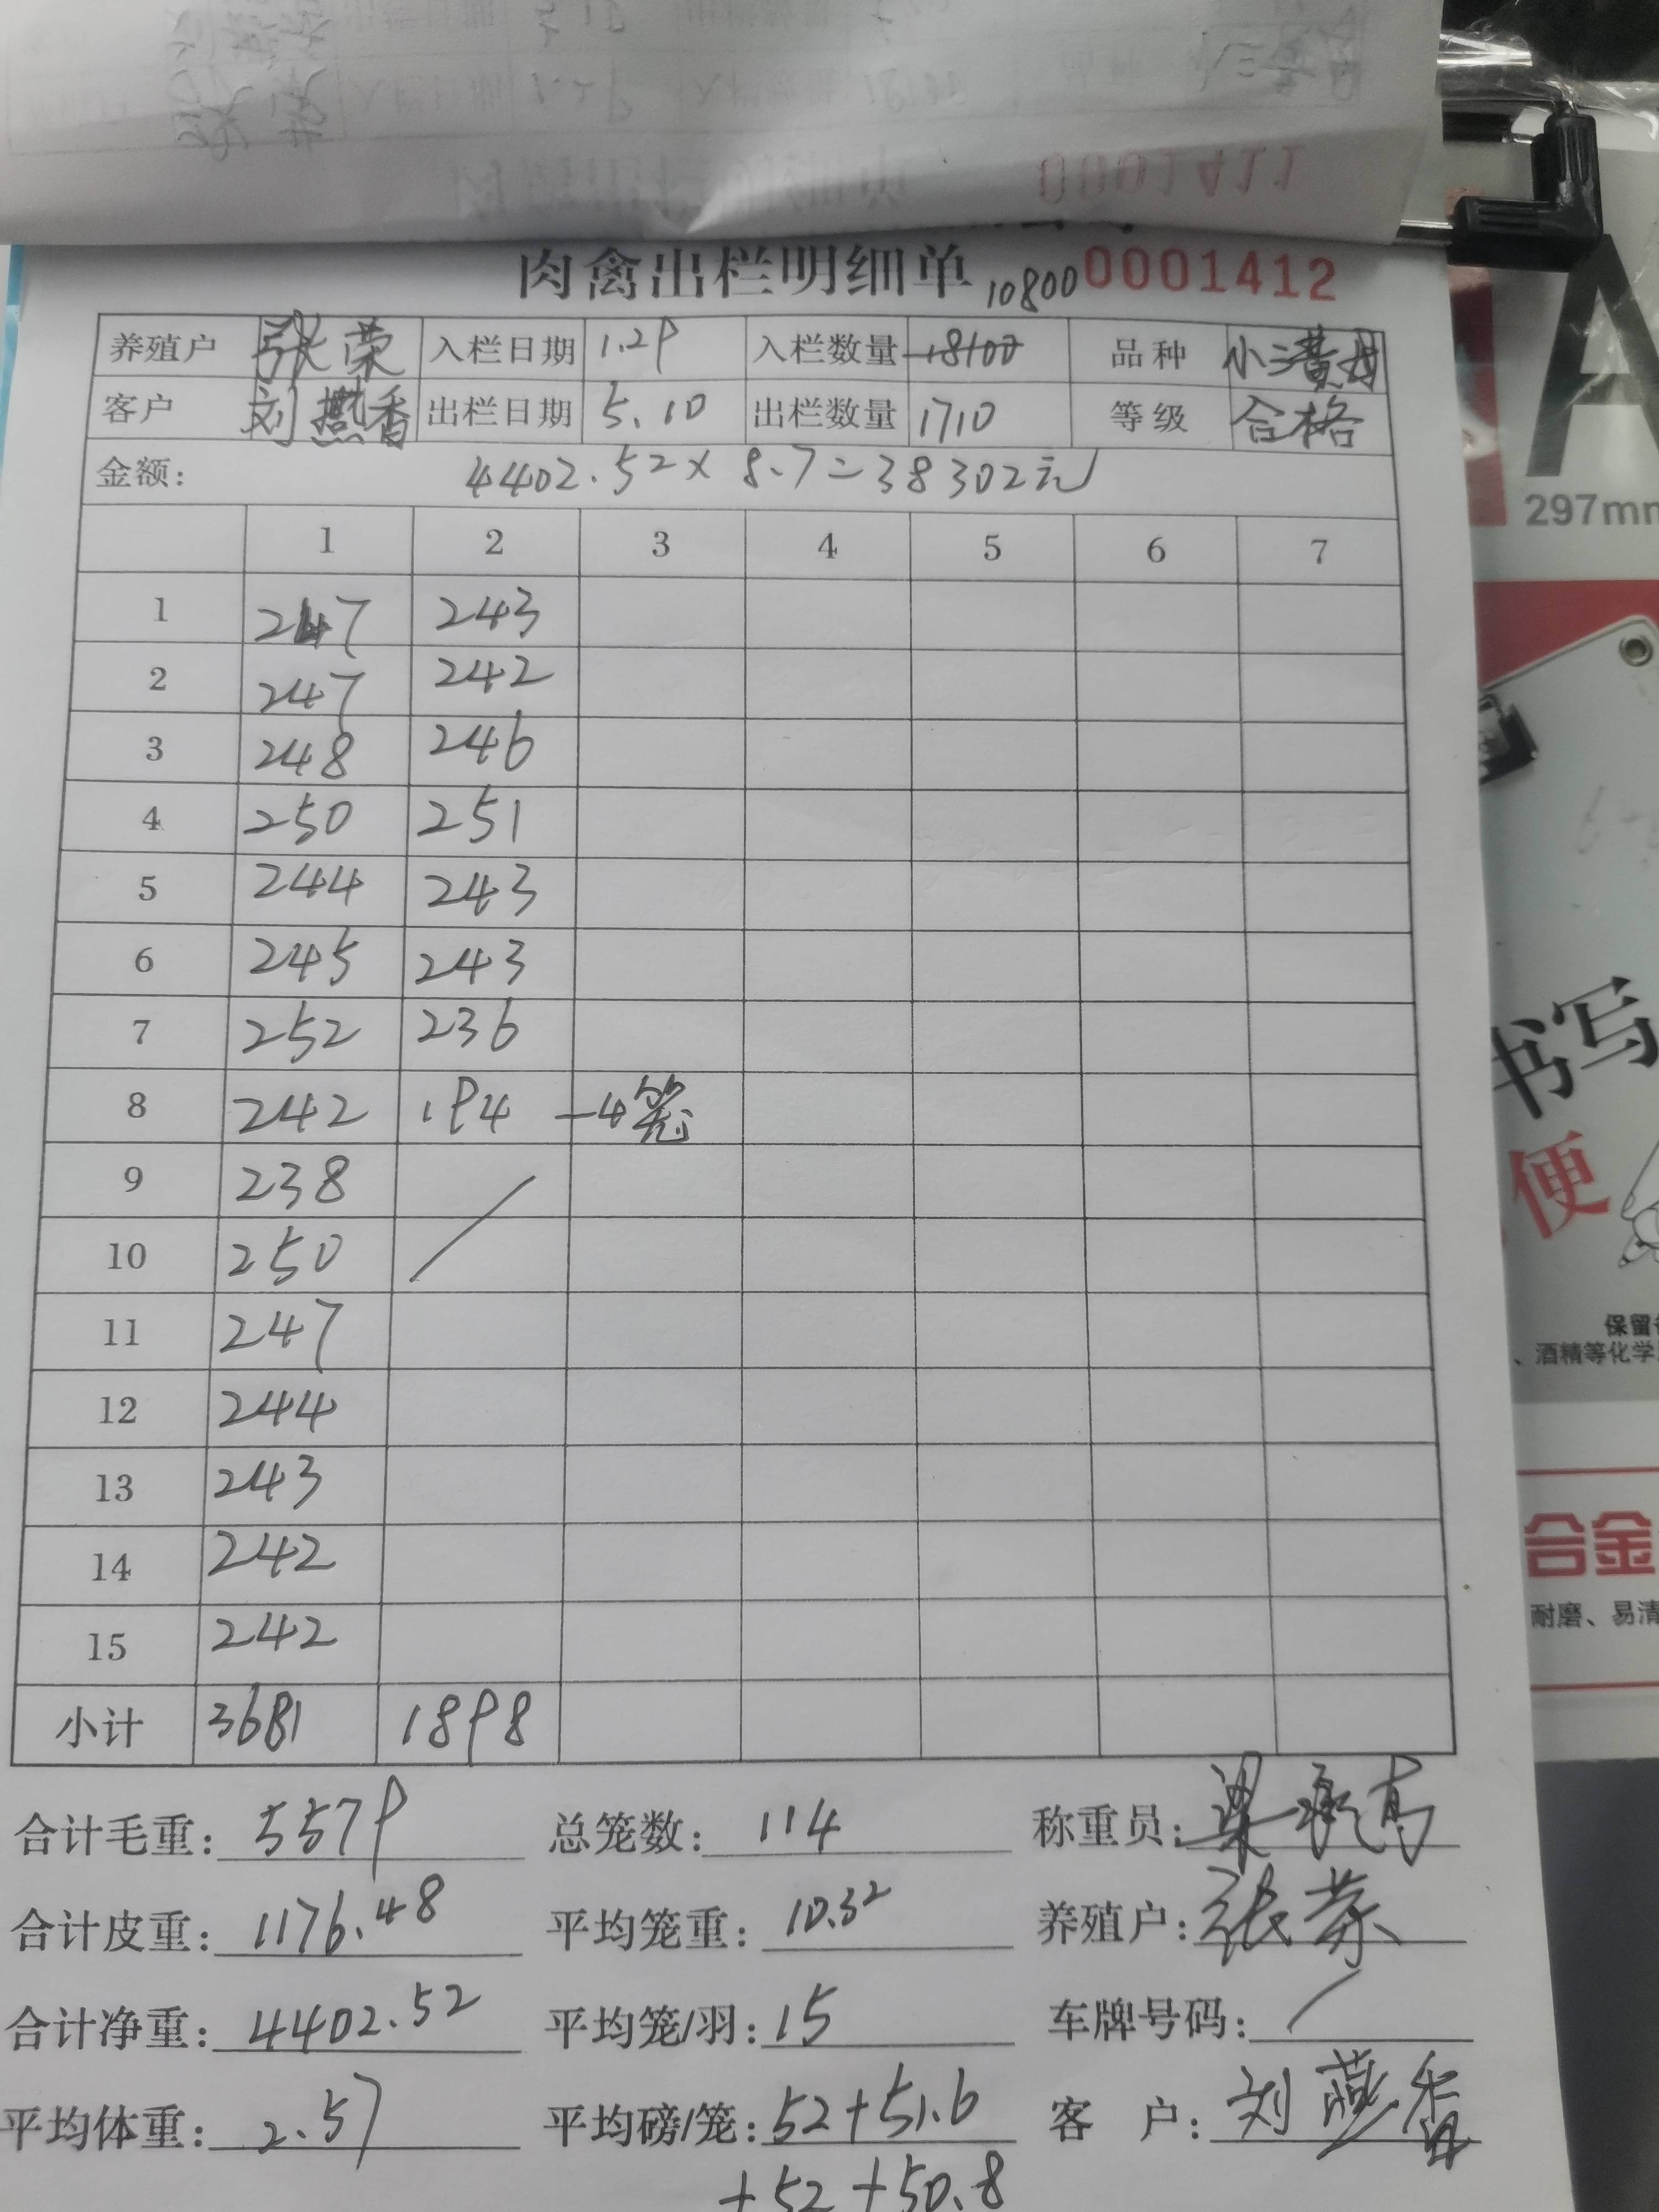 0001411
肉禽出栏明细单 10800 0001412
养殖户 张荣 入栏日期 1.29 入栏数量 18100 品种 小三黄母
客户 刘燕香 出栏日期 5.10 出栏数量 1710 等级 合格
金额: 4402.52×8.7=38302元
1 2 3 4 5 6 7
1 247 243
2 247 242
3 248 246
4 250 251
5 244 243
6 245 243
7 252 236
8 242 194 —4笼
9 238
10 250
11 247
12 244
13 243
14 242
15 242
小计 3681 1898
合计毛重: 5579 总笼数: 114 称重员: 梁承高
合计皮重: 1176.48 平均笼重: 10.32 养殖户: 张荣
合计净重: 4402.52 平均笼/羽: 15 车牌号码: /
平均体重: 2.57 平均磅/笼: 52+51.6 客 户: 刘燕香
+52+50.8
A
297mm
书写
便
保留
、酒精等化学
合金
耐磨、易清